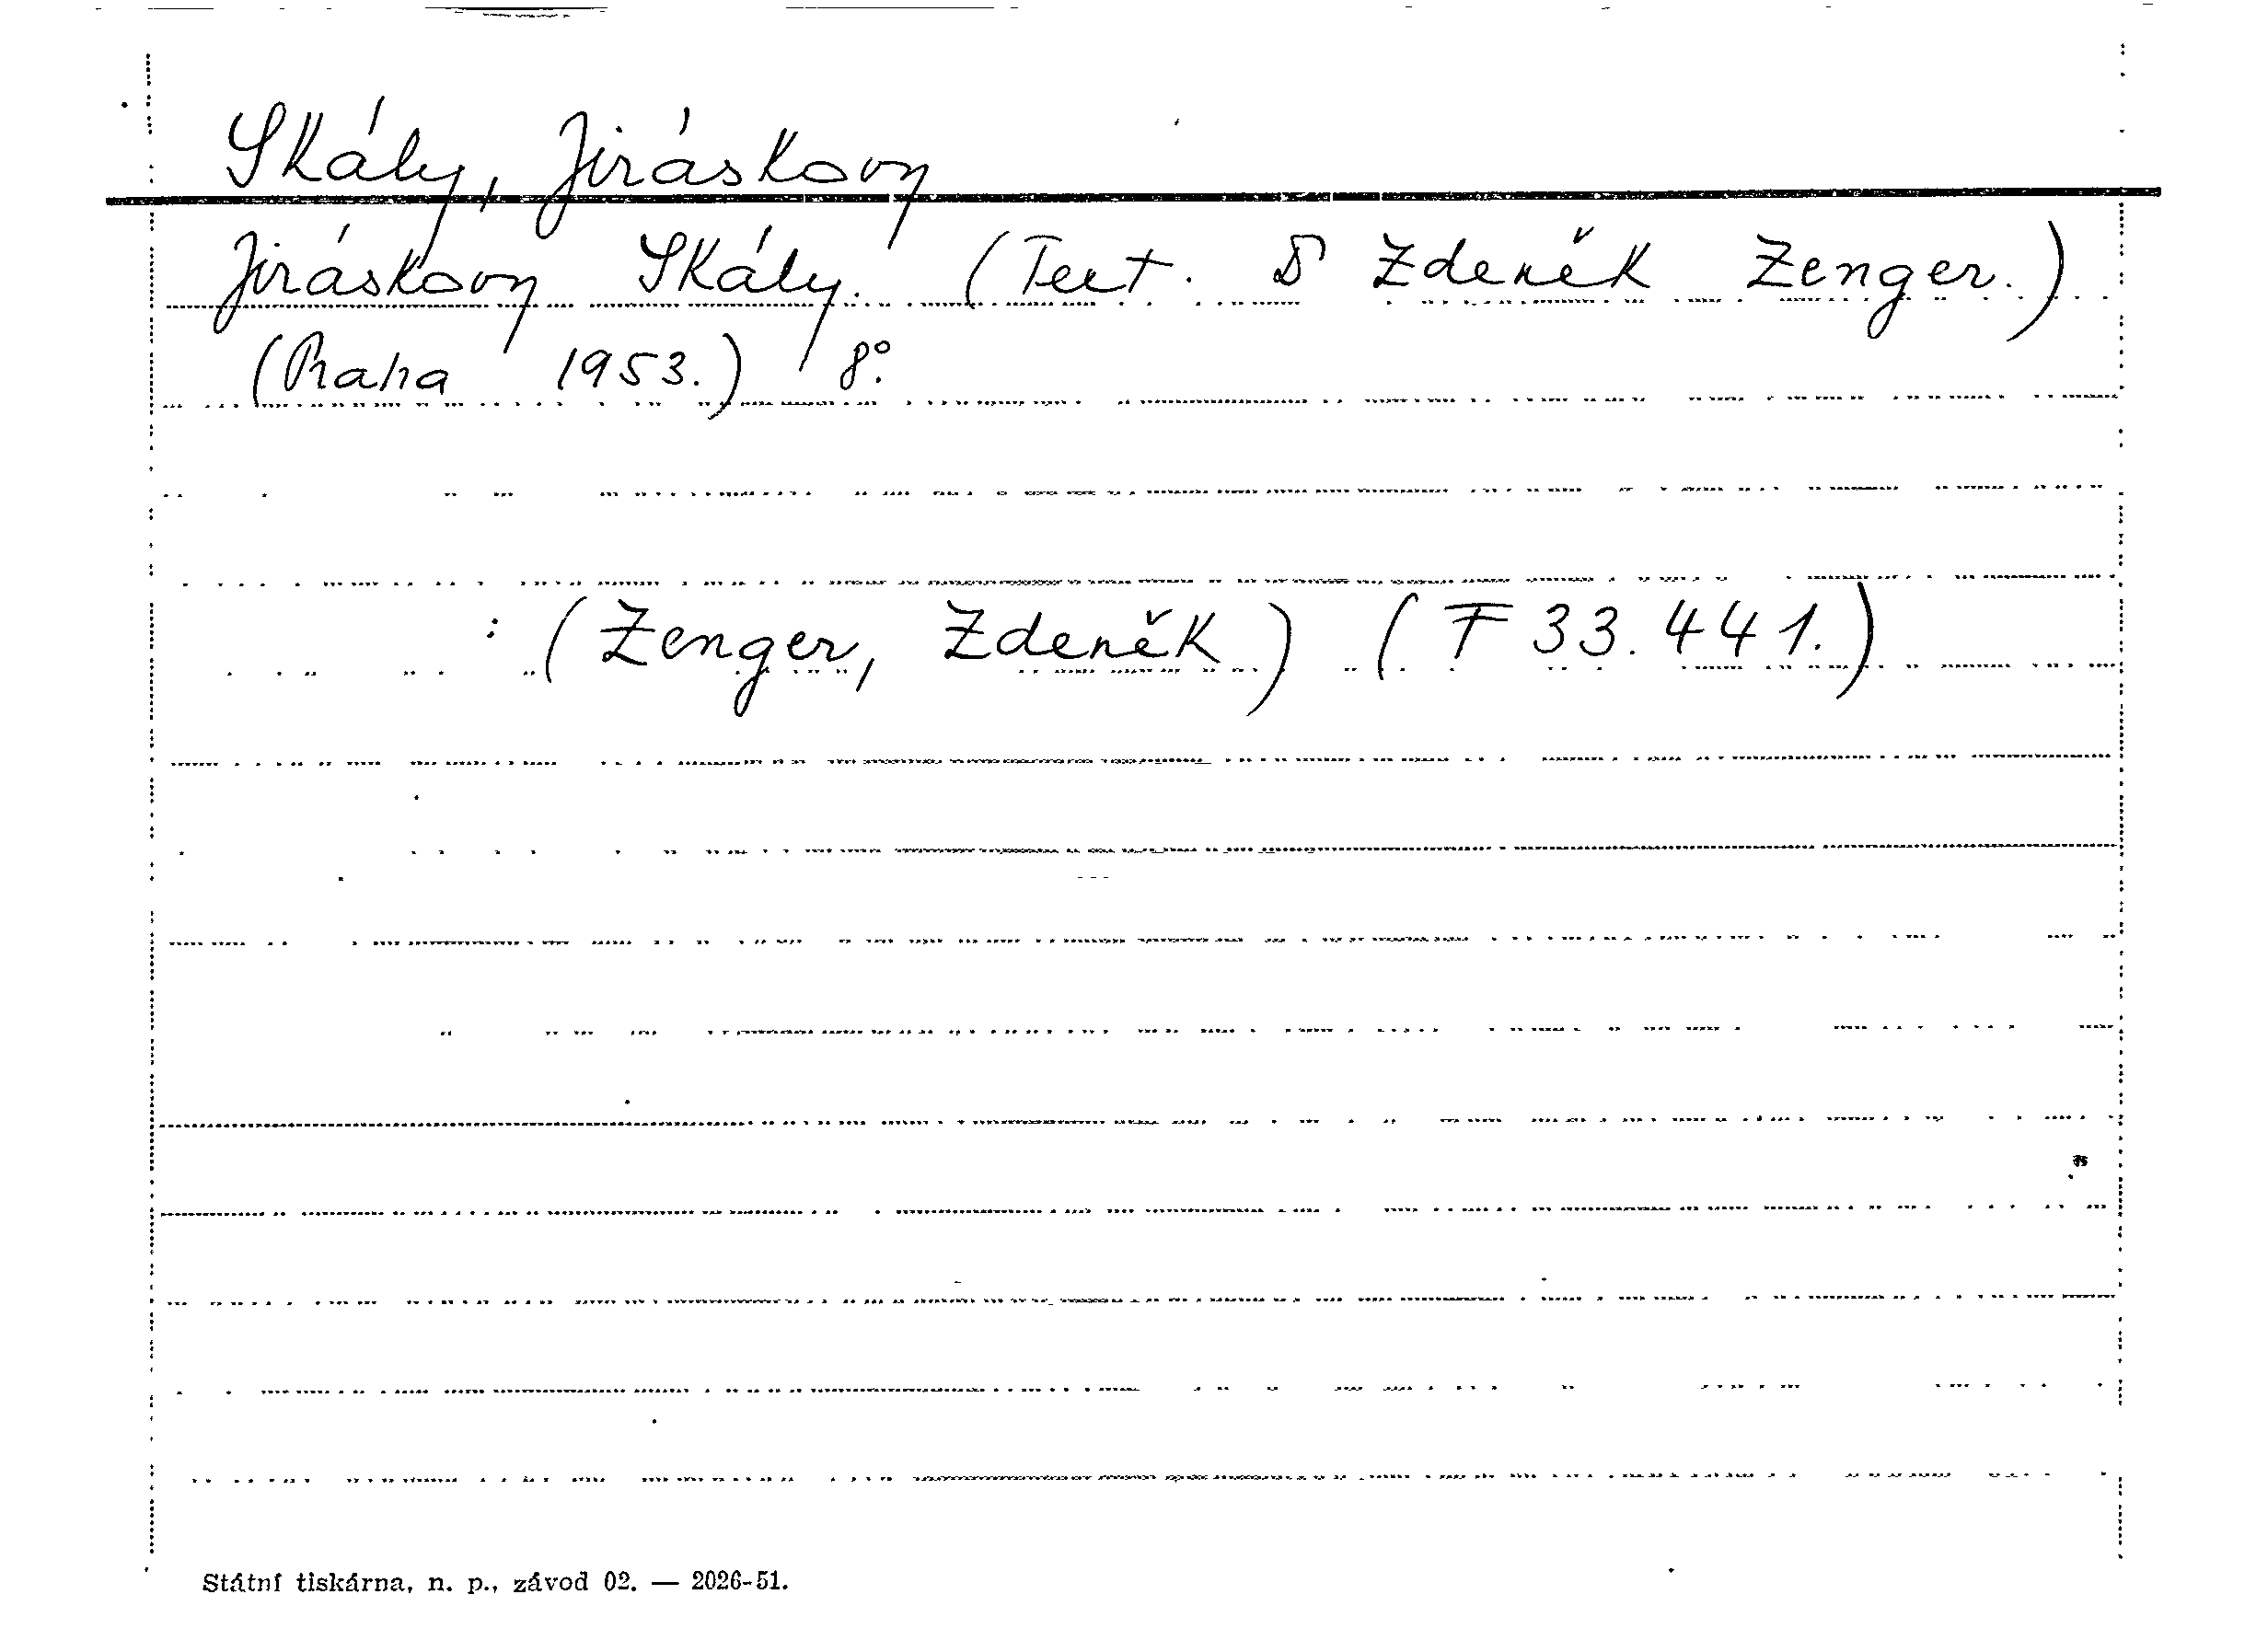 Skály, Jiráskovy
Jiráskovy Skály. (Text. Dr Zdeněk Zenger.)
(Praha 1953.) 8°.
: (Zenger, Zdeněk) (F 33.441.)
Státní tiskárna, n. p., závod 02. — 2026-51.